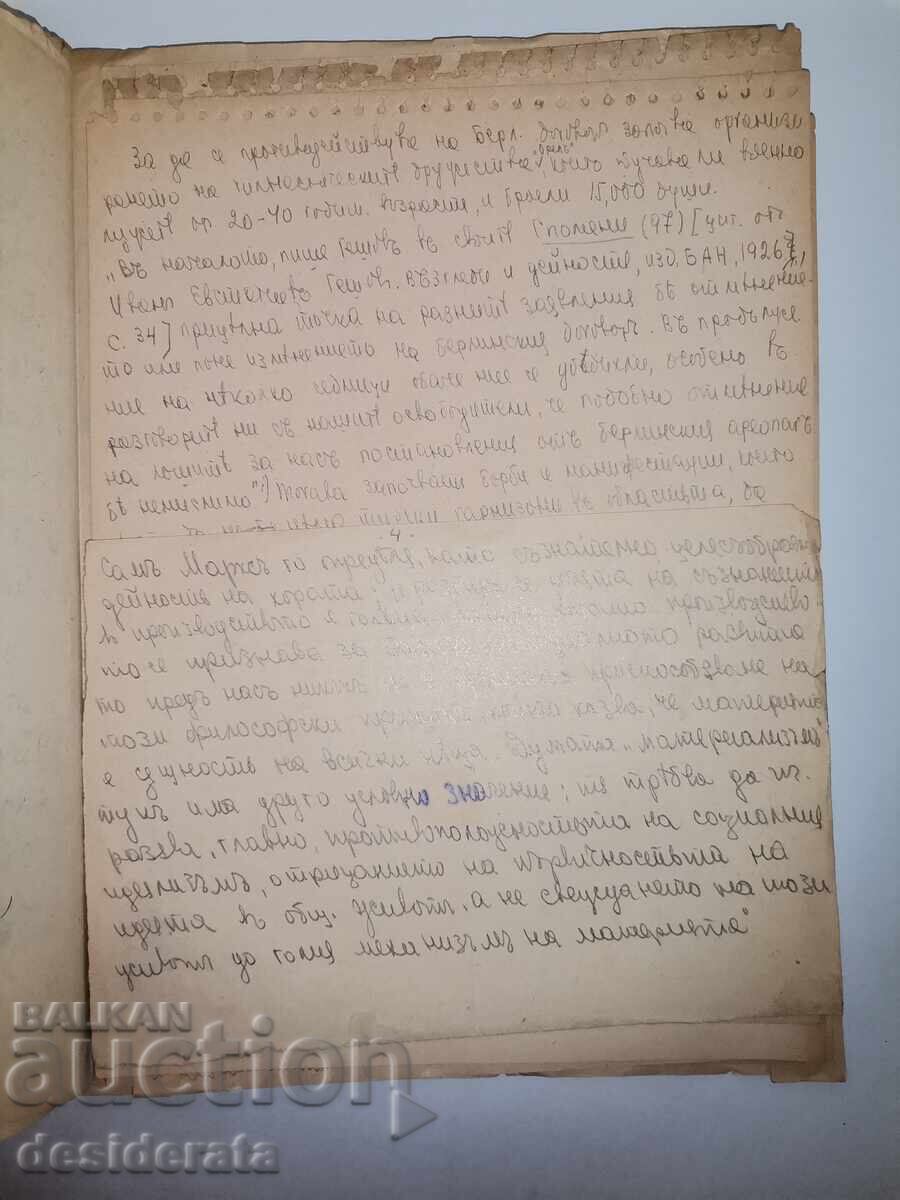 За да се противодействува на Берл. договоръ започва организи
рането на гимнастическите дружества "Орелъ", които изучавали военно
от 20-40 годиш. възрасть, и броели 15,000 души.
„Въ началото, пише Гешовъ въ своите Спомени (97) [цит. отъ
Иванъ Евстатиевъ Гешов. Възгледи и дейность, изд. БАН, 1926 г.,
с. 34] прицелна точка на разните заявления бѣ отмѣнение-
то или поне измѣнението на Берлинския договоръ. Въ продълже
ние на нѣколко седмици обаче ние се убѣдихме, особено въ
разговорите ни съ нашите освободители, че подобно отмѣнение
на лошите за насъ постановления отъ Берлинския ареопагъ
бѣ немислимо". Тогава започвали борби и манифестации, които
гарнизони въ областьта, да
4.
Самъ Марксъ го опредѣля, като съзнателно целесъобразна
дейность на хората; на съзнанието
въ производството е производство
то се признава за
то предъ насъ приспособяване на
този философски принципъ, който казва, че материята
е сущность на всички нѣща. Думата „материализъмъ"
тукъ има друго условно значение; тя трѣбва да из-
разява, главно, противоположностьта на социалния
идеализъмъ, отрицанието на първичностьта на
идеята въ общ. животъ, а не свеждането на този
животъ до голия механизъмъ на материята"
BALKAN
auction
desiderata